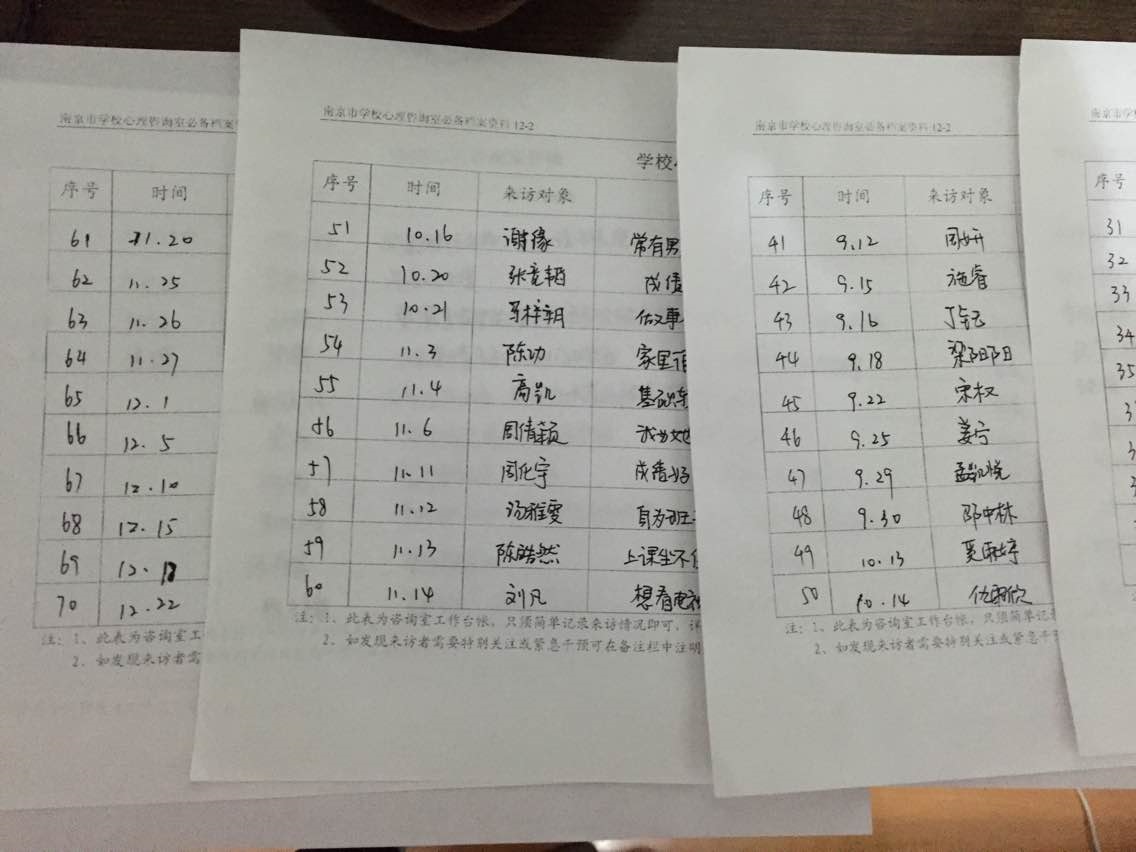 南京市学校心理咨询室必备档案资料
序号 时间
61 11.20
62 11.25
63 11.26
64 11.27
65 12.1
66 12.5
67 12.10
68 12.15
69 12.18
70 12.22
注：1、此表为咨询室工
2、如发现来访者需
南京市学校心理咨询室必备档案资料 12-2
学校
序号 时间 来访对象
51 10.16 谢缘 常有男
52 10.20 成绩
53 10.21 做啥事
54 11.3 陈功 家里
55 11.4 高凯 基础
56 11.6 周倩颖
57 11.11 周化宇 成绩好
58 11.12 汤雅雯 身为班
59 11.13 陈皓然 上课坐不
60 11.14 刘凡 想看电视
注：1、此表为咨询室工作台帐，只须简单记录来访情况即可，详
2、如发现来访者需要特别关注或紧急干预可在备注栏中注明
南京市学校心理咨询室必备档案资料 12-2
序号 时间 来访对象
41 9.12 周妍
42 9.15 施睿
43 9.16
44 9.18
45 9.22 宋权
46 9.25 姜宁
47 9.29 孟凯悦
48 9.30 邵中林
49 10.13 夏雨婷
50 10.14 仇雨欣
注：1、此表为咨询室工作台帐，只须简单记录
2、如发现来访者需要特别关注或紧急干
南京市学
序号
31
32
33
34
35